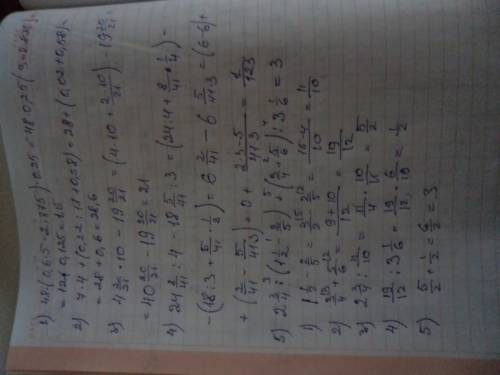 1) 48·(0,6·5-2,875)·0,25=48·0,25(3-2,875)=
=12·0,125=1,5
2) 7·4+(0,22:11+0,58)=28+(0,02+0,58)=
=28+0,6=28,6
3) 4 2/21 ·10-19 20/21=(4·10+ 2·10/21)-19 20/21=
=40 20/21-19 20/21=21
4) 24 8/41:4-18 5/41:3=(24:4+8/41·1/4)-
-(18:3+5/41·1/3)=6 2/41-6 5/41·3=(6-6)+
+(2/41-5/41·3)=0+ 2·3-5/41·3= /123
5) 2 3/4:(1 1/2-2/5)+(3/4+5/6):3 1/6=3
1) 1 1/2-2/5=3/2-2/5=15-4/10=11/10
2) 3/4+5/6=9+10/12=19/12
3) 2 3/4:11/10=11/4·10/11=5/2
4) 19/12:3 1/6=19/12·6/19=1/2
5) 5/2+1/2=6/2=3